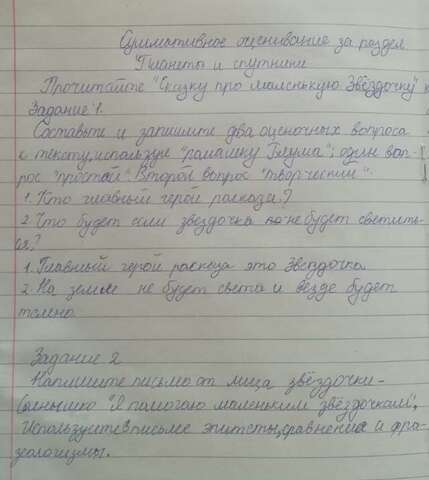 Суммативное оценивание за раздел
"Планеты и спутники
Прочитайте "Сказку про маленькую Звёздочку"
Задание 1.
Составьте и запишите два оценочных вопроса
к тексту, используя "ромашку Блума"; один воп-
рос "простой". Второй вопрос "творческий".
1. Кто главный герой расказа?
2. Что будет если звездочка не будет светить-
ся?
1. Главный герой расказа это Звёздочка
2. На земле не будет света и везде будет
темно
Задание 2
Напишите письмо от лица звёздочки-
Солнышко "Я помогаю маленьким звёздочкам",
Используйте в письме эпитеты, сравнения и фра-
зеологизмы.